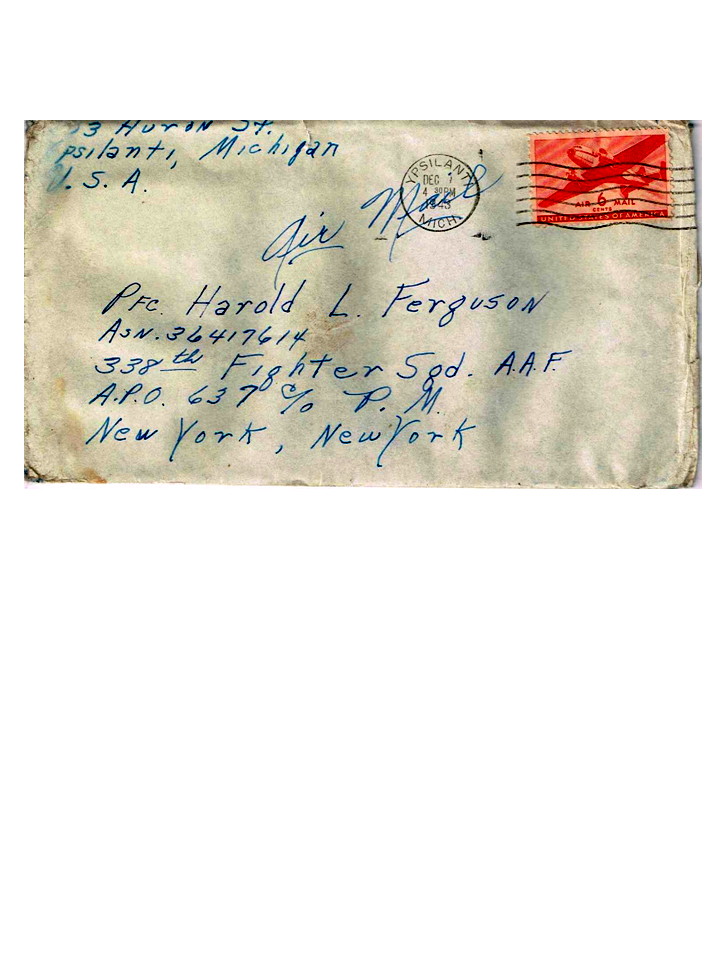 3 Huron St.
Ypsilanti, Michigan
U. S. A.
YPSILANTI
DEC 7
4 30 PM
1943
MICH.
AIR 6 MAIL
CENTS
UNITED STATES OF AMERICA
Air Mail
Pfc. Harold L. Ferguson
Asn. 36417614
338th Fighter Sqd. A.A.F.
A.P.O. 637 c/o P. M.
New York, New York